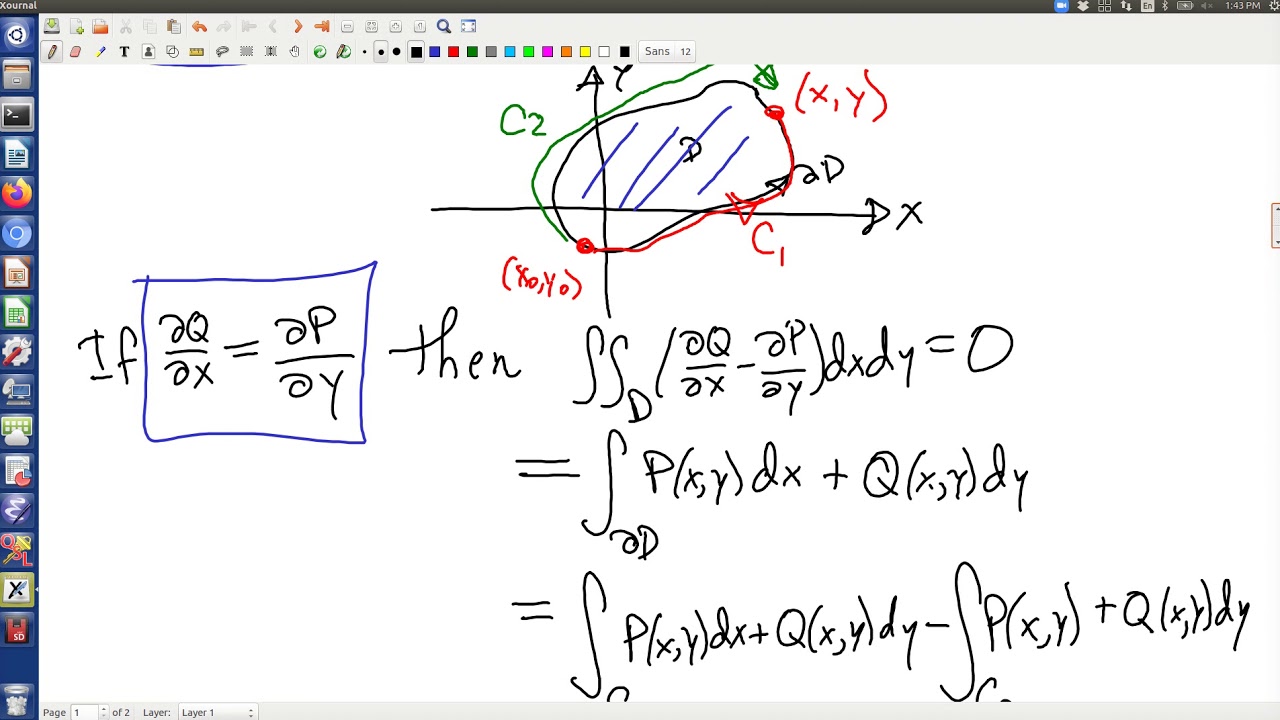 Xournal
En
1:43 PM
Sans 12
Y
(x, y)
C2
D
∂D
X
C₁
(x₀, y₀)
If ∂Q/∂X = ∂P/∂Y then ∫∫_D (∂Q/∂X - ∂P/∂y) dx dy = 0
= ∫_∂D P(x,y) dx + Q(x,y) dy
= ∫ P(x,y) dx + Q(x,y) dy - ∫ P(x,y) + Q(x,y) dy
Page 1 of 2 Layer: Layer 1